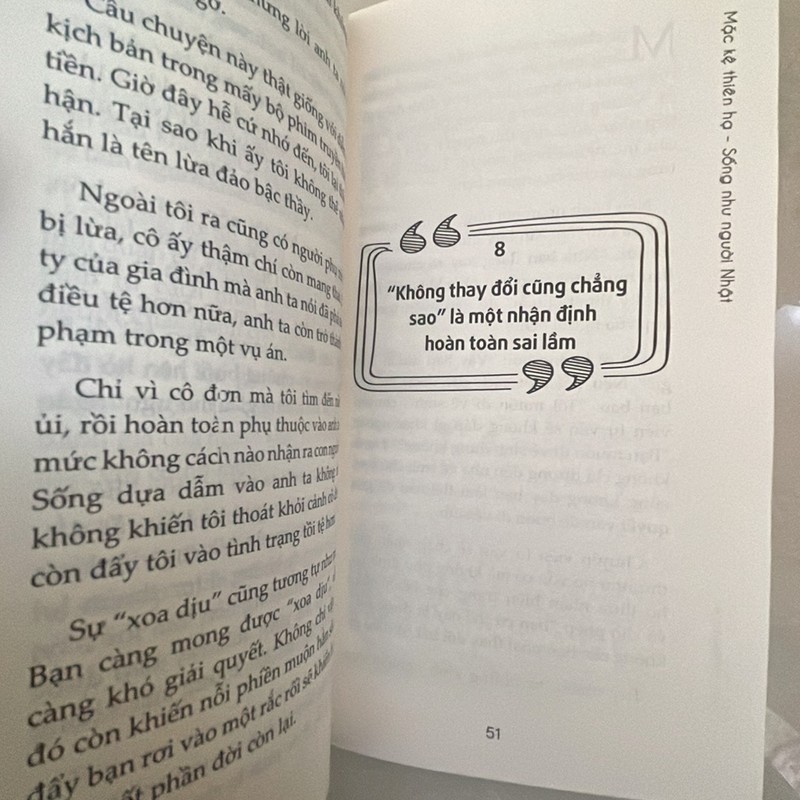 những lời anh ta
Câu chuyện này thật giống với
kịch bản trong mấy bộ phim truyền
tiền. Giờ đây hễ cứ nhớ đến, tôi lại
hận. Tại sao khi ấy tôi không thể
hắn là tên lừa đảo bậc thầy.
Ngoài tôi ra cũng có người phụ
bị lừa, cô ấy thậm chí còn mang
ty của gia đình mà anh ta nói đã
điều tệ hơn nữa, anh ta còn trở
phạm trong một vụ án.
Chỉ vì cô đơn mà tôi tìm đến
ủi, rồi hoàn toàn phụ thuộc vào
mức không cách nào nhận ra con
Sống dựa dẫm vào anh ta không
không khiến tôi thoát khỏi cảnh
còn đẩy tôi vào tình trạng tồi tệ hơn
Sự “xoa dịu” cũng tương tự như
Bạn càng mong được “xoa dịu”,
càng khó giải quyết. Không chỉ
đó còn khiến nỗi phiền muộn
đẩy bạn rơi vào một rắc rối sẽ
phần đời còn lại.
Mặc kệ thiên hạ - Sống như người Nhật
8
“Không thay đổi cũng chẳng
sao” là một nhận định
hoàn toàn sai lầm
51